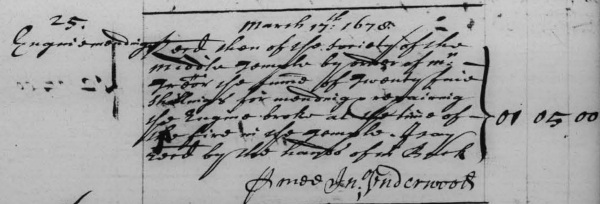 25.
March 17th. 1678.
Enginemending Recd then of the Society of the
Middle Temple by order of mr
the summe of twenty five
shillings for mending & repairing
the Engine broke at the time of
the fire in the Temple I say
recd by the hands of mr Buck
01 05 00
Jno. Underwood